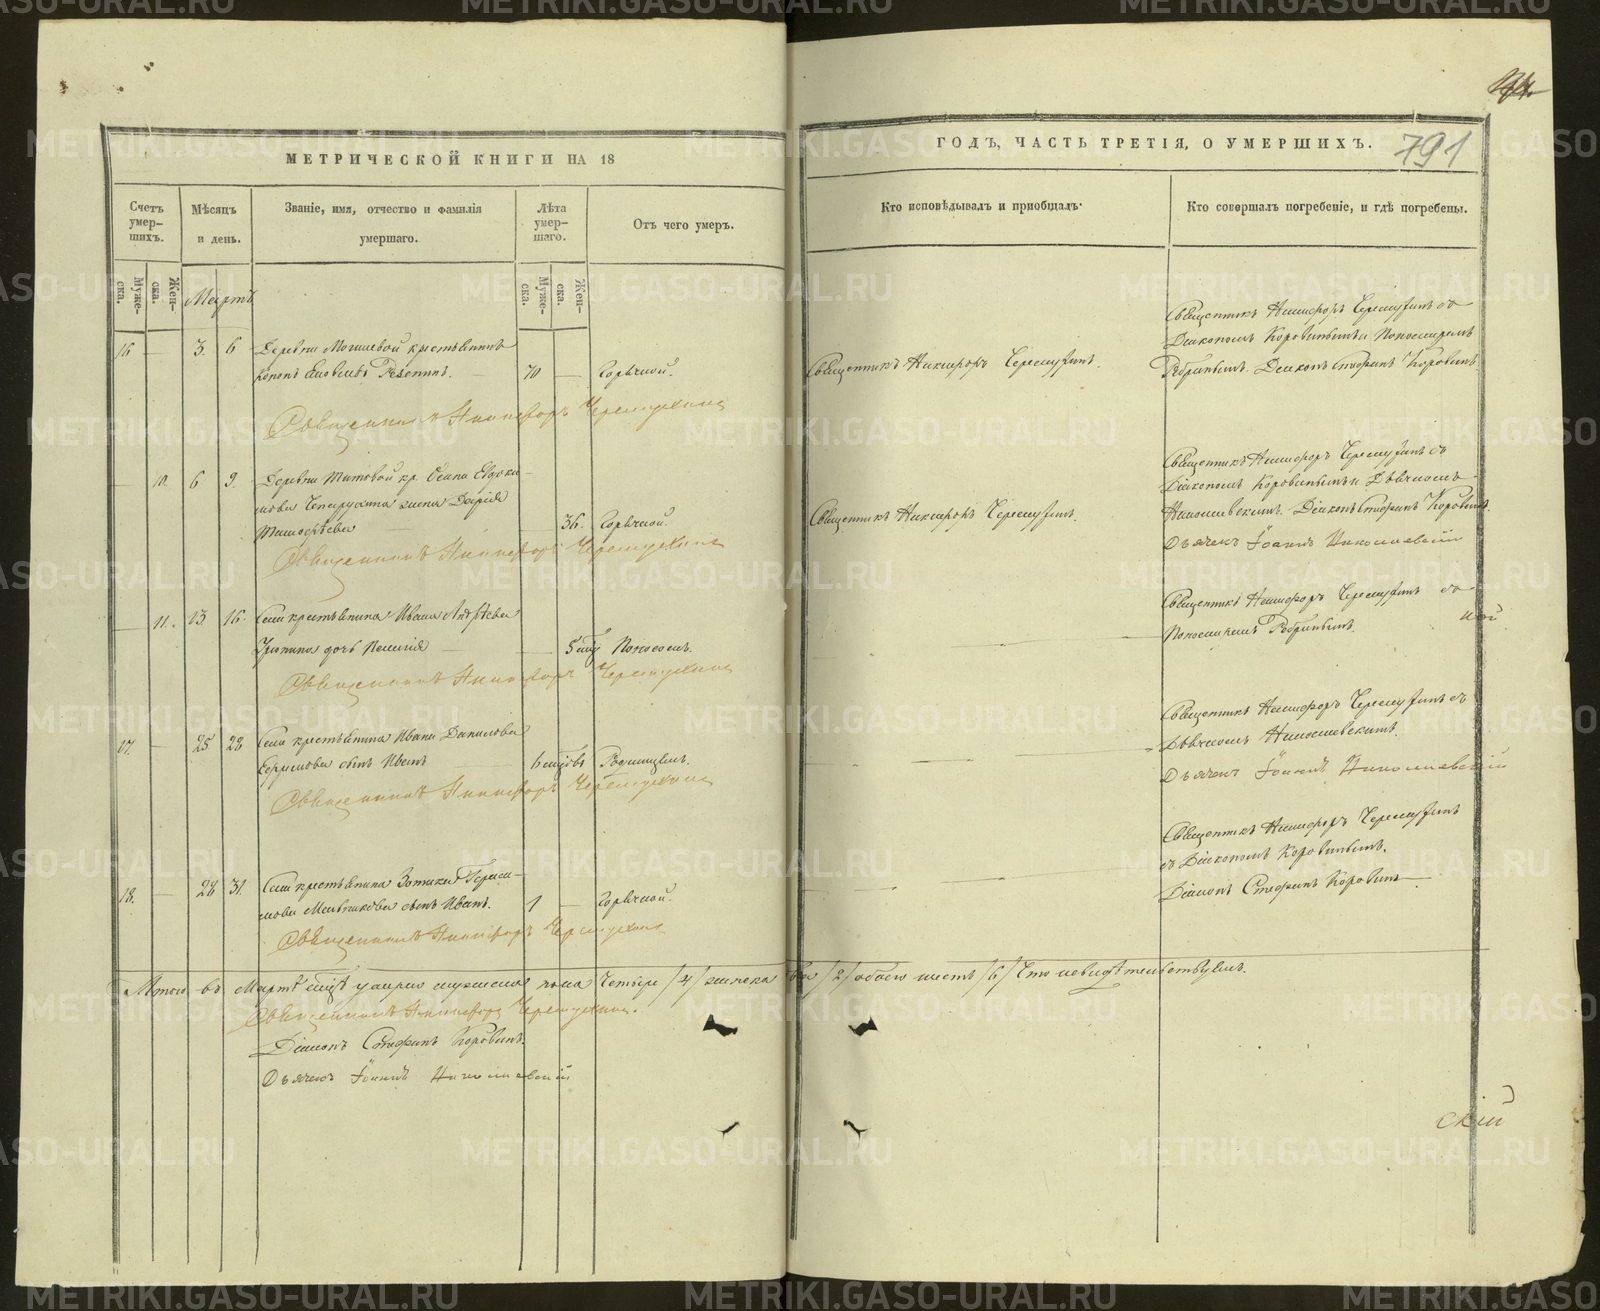 МЕТРИЧЕСКОЙ КНИГИ НА 18
Счетъ умер-шихъ.
Мѣсяцъ и день.
Званіе, имя, отчество и фамилія умершаго.
Лѣта умер-шаго.
Отъ чего умеръ.
Муже-ска.
Жен-ска.
Муже-ска.
Жен-ска.
Мартъ
16 — 3. 6
крестьянинъ
70 — Горячкой.
Священникъ Никифоръ Черемухинъ
10. 6 9.
Деревни Титовой кр. Осипа Евдоки-
мова жена Дарія
Тимофѣева 36. Горячкой.
Священникъ Никифоръ Черемухинъ
11. 13. 16. Села крестьянина Ивана Андрѣева
дочь Пелагія — Поносомъ.
Священникъ Никифоръ Черемухинъ
17. — 25 28 Села крестьянина Ивана Данилова
сынъ Иванъ Родимцемъ.
Священникъ Никифоръ Черемухинъ
18. — 28 31. Села крестьянина Зотика Гераси-
мова Мельникова сынъ Иванъ. 1 — Горячкой.
Священникъ Никифоръ Черемухинъ
Итого въ Мартѣ умерло мужеска пола Четыре /4/ женска два /2/ обоего шесть /6/ Что и свидѣтельствуемъ.
Священникъ Никифоръ Черемухинъ.
Діаконъ Стефанъ Коровинъ.
Дьячекъ Іоаннъ Николаевскій
ГОДЪ, ЧАСТЬ ТРЕТІЯ, О УМЕРШИХЪ.
791
Кто исповѣдывалъ и пріобщалъ.
Кто совершалъ погребеніе, и гдѣ погребены.
Священникъ Никифоръ Черемухинъ.
Священникъ Никифоръ Черемухинъ съ
Діакономъ Коровинымъ и Пономаремъ
Діаконъ Стефанъ Коровинъ
Священникъ Никифоръ Черемухинъ.
Священникъ Никифоръ Черемухинъ съ
Діакономъ Коровинымъ и Дьячкомъ
Николаевскимъ. Діаконъ Стефанъ Коровинъ.
Дьячекъ Іоаннъ Николаевскій
Священникъ Никифоръ Черемухинъ съ
Пономаремъ
Священникъ Никифоръ Черемухинъ съ
Дьячкомъ Николаевскимъ.
Дьячекъ Іоаннъ Николаевскій
Священникъ Никифоръ Черемухинъ
съ Діакономъ Коровинымъ.
Діаконъ Стефанъ Коровинъ
скій
METRIKI.GASO-URAL.RU